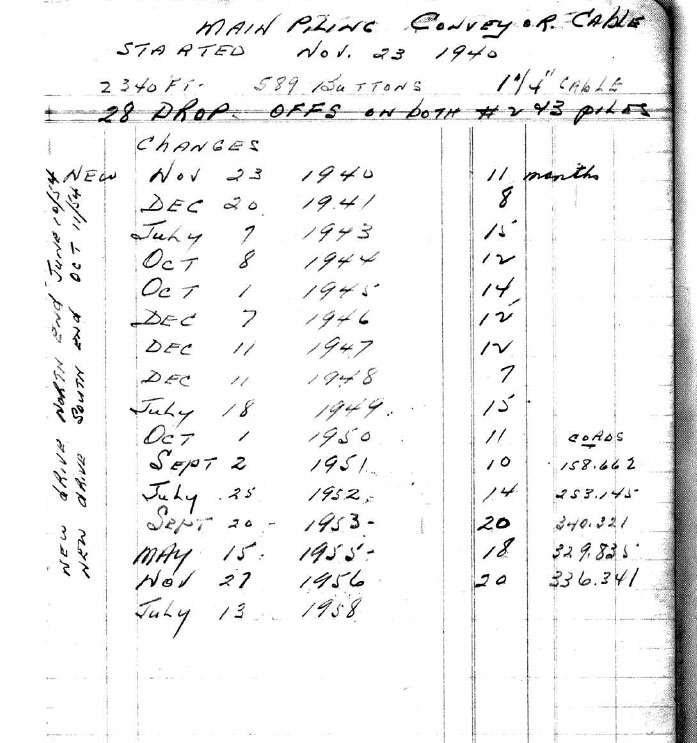 MAIN PILING CONVEYOR. CABLE
STARTED NOV. 23 1940
2340 FT. 589 BUTTONS 1 1/4" CABLE
28 DROP OFFS ON BOTH #2 #3 PILES
CHANGES
NEW NOV 23 1940 11 months
DEC 20 1941 8
July 7 1943 15
OCT 8 1944 12
OCT 1 1945 14
DEC 7 1946 12
DEC 11 1947 12
DEC 11 1948 7
July 18 1949. 15
OCT 1 1950 11 CORDS
SEPT 2 1951 10 158.662
July 25 1952. 14 253.145
SEPT 20 - 1953 - 20 340.321
MAY 15 1955 - 18 329.835
NOV 27 1956 20 336.341
July 13 1958
NEW DRIVE NORTH END JUNE 10/54
NEW DRIVE SOUTH END OCT 11/54